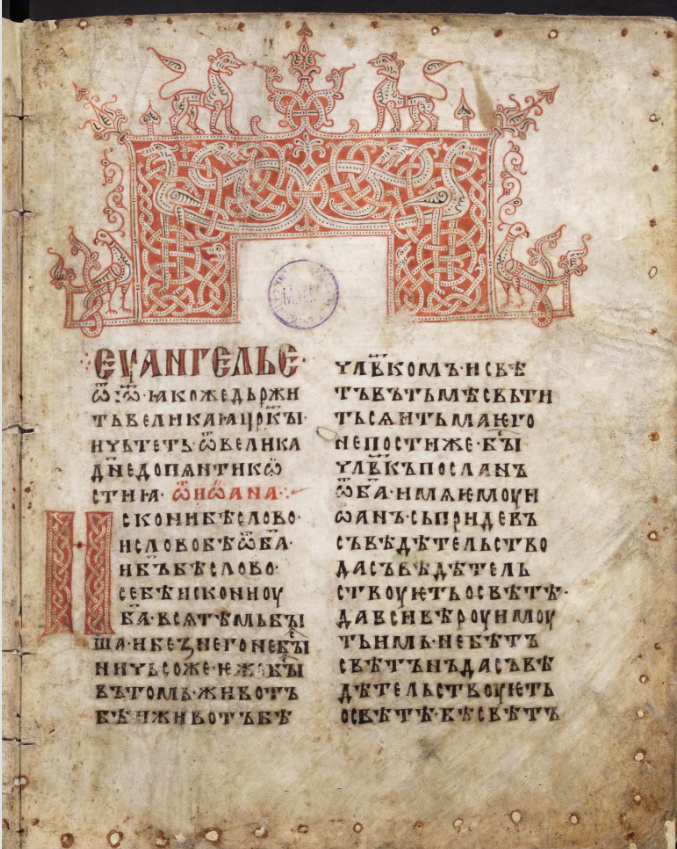 ЕУАНГЕЛЬЕ·
ѿ іѿ· ꙗкоже дьржи
ть великаꙗ црк҃ы·
и чьтеть· ѿ велика
дн҃е до пѧнтикѡ
стиꙗ· ѿ иѡана·
Искони бѣ слово·
и слово бѣ ѿ ба҃·
и бъ҃ бѣ слово·
се бѣ искони оу
ба҃· вся тѣмь бы
ша· и без него не бы
ничьсоже· ѥже бы
въ томь· животъ
бѣ· и животъ бѣ
члв҃комъ· и свѣ
тъ въ тьмѣ свьти
ться· и тьма ѥго
не постиже· бы
члв҃къ посланъ
ѿ ба҃· имя ѥмоу и
ѡанъ· сь приде въ
съвѣдѣтельство
да съвѣдѣтель
ствоуѥть о свѣтѣ·
да вси вѣроу имоу
ть имь· не бѣ тъ
свѣтъ нъ да съвѣ
дѣтельствоуѥть
о свѣтѣ· бѣ свѣтъ